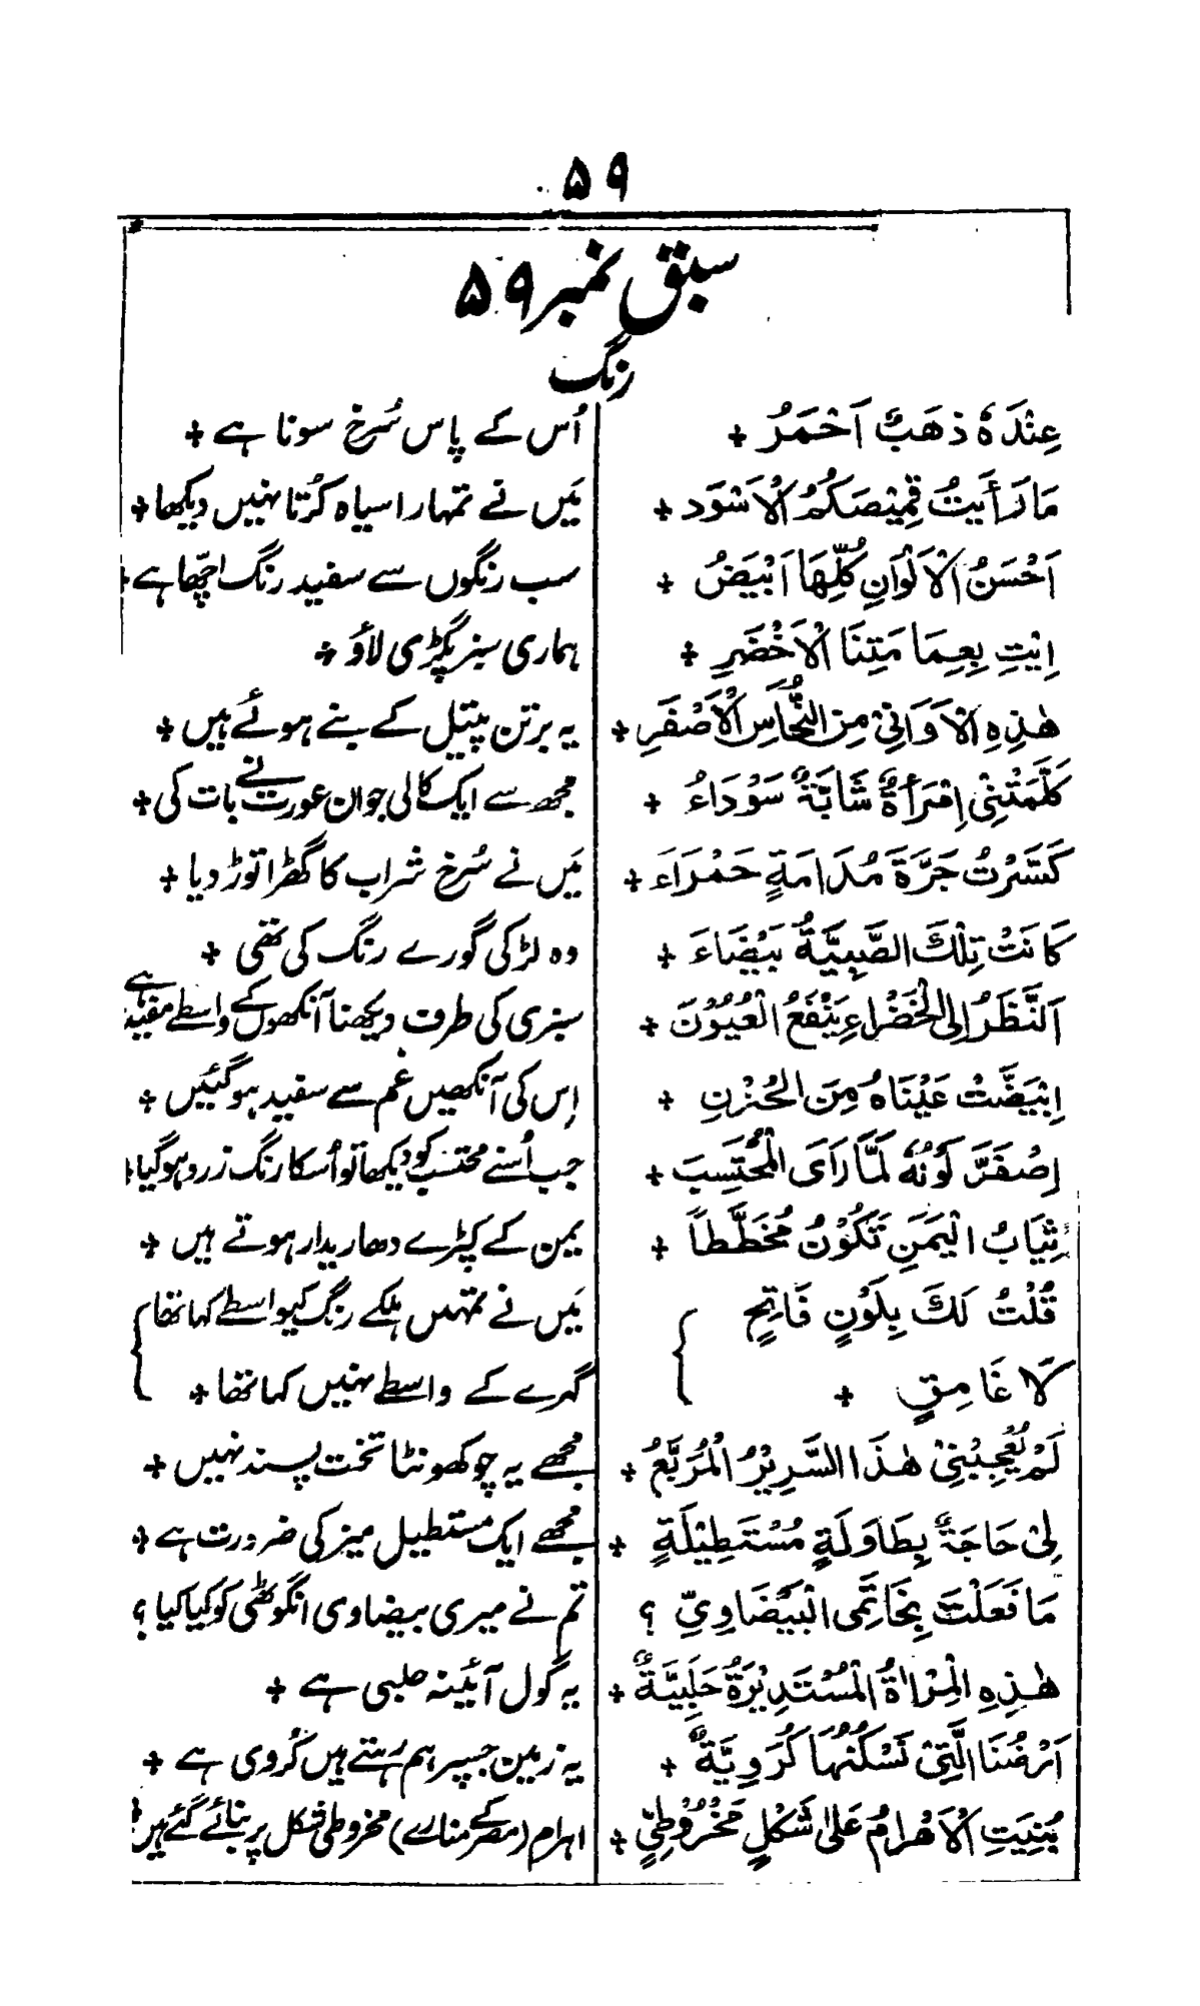 ۵۹
سبق نمبر ۵۹
رنگ
عِنْدَهٗ ذَهَبٌ اَحْمَرُ + اُس کے پاس سُرخ سونا ہے +
مَا رَأَیتُ قَمِیْصَکُمُ الْاَسْوَد + مَیں نے تمہارا سیاہ کُرتا نہیں دیکھا +
اَحْسَنُ الْاَلْوَانِ کُلِّهَا اَبْیَضُ + سب رنگوں سے سفید رنگ اچّھا ہے +
اِیْتِ بِعِمَامَتِنَا الْاَخْضَرِ + ہماری سبز پگڑی لاؤ +
هٰذِهِ الْاَوَانِیْ مِنَ النُّحَاسِ الْاَصْفَرِ + یہ برتن پیتل کے بنے ہوئے ہیں +
کَلَّمَتْنِیْ اِمْرَأَةٌ شَابَّةٌ سَوْدَاءُ + مجھ سے ایک کالی جوان عورت نے بات کی +
کَسَّرْتُ جَرَّةَ مُدَامَةٍ حَمْرَاءَ + مَیں نے سُرخ شراب کا گھڑا توڑ دیا +
کَانَتْ تِلْكَ الصَّبِیَّةُ بَیْضَاءَ + وہ لڑکی گورے رنگ کی تھی +
اَلنَّظَرُ اِلَی الْخَضْرَاءِ یَنْفَعُ الْعُیُوْنَ + سبزی کی طرف دیکھنا آنکھوں کے واسطے مفید ہے
اِبْیَضَّتْ عَیْنَاهُ مِنَ الْحُزْنِ + اِس کی آنکھیں غم سے سفید ہوگئیں +
اِصْفَرَّ لَوْنُهٗ لَمَّا رَاَی الْمُحْتَسِبَ + جب اُسنے محتسب کو دیکھا تو اُسکا رنگ زرد ہوگیا +
ثِیَابُ الْیَمَنِ تَکُوْنُ مُخَطَّطاً + یمن کے کپڑے دھاریدار ہوتے ہیں +
قُلْتُ لَكَ بِلَوْنٍ فَاتِحٍ مَیں نے تمہیں ہلکے رنگ کیواسطے کہا تھا
لَا غَامِقٍ + گہرے کے واسطے نہیں کہا تھا +
لَمْ یُعْجِبْنِیْ هٰذَا السَّرِیْرُ الْمُرَبَّعُ + مجھے یہ چوکھونٹا تخت پسند نہیں +
لِیْ حَاجَةٌ بِطَاوِلَةٍ مُسْتَطِیْلَةٍ + مجھے ایک مستطیل میز کی ضرورت ہے +
مَا فَعَلْتَ بِخَاتَمِی الْبَیْضَاوِیِّ ؟ تم نے میری بیضاوی انگوٹھی کو کیا کیا ؟
هٰذِهِ الْمِرْاٰةُ الْمُسْتَدِیْرَةُ حَلَبِیَّةٌ + یہ گول آئینہ حلبی ہے +
اَرْضُنَا الَّتِیْ نَسْکُنُهَا کُرَوِیَّةٌ + یہ زمین جسپر ہم رہتے ہیں کُروی ہے +
بُنِیَتِ الْاَهْرَامُ عَلٰی شَکْلٍ مَخْرُوْطِیٍّ + اہرام (مصر کے منارے) مخروطی شکل پر بنائے گئے ہیں +